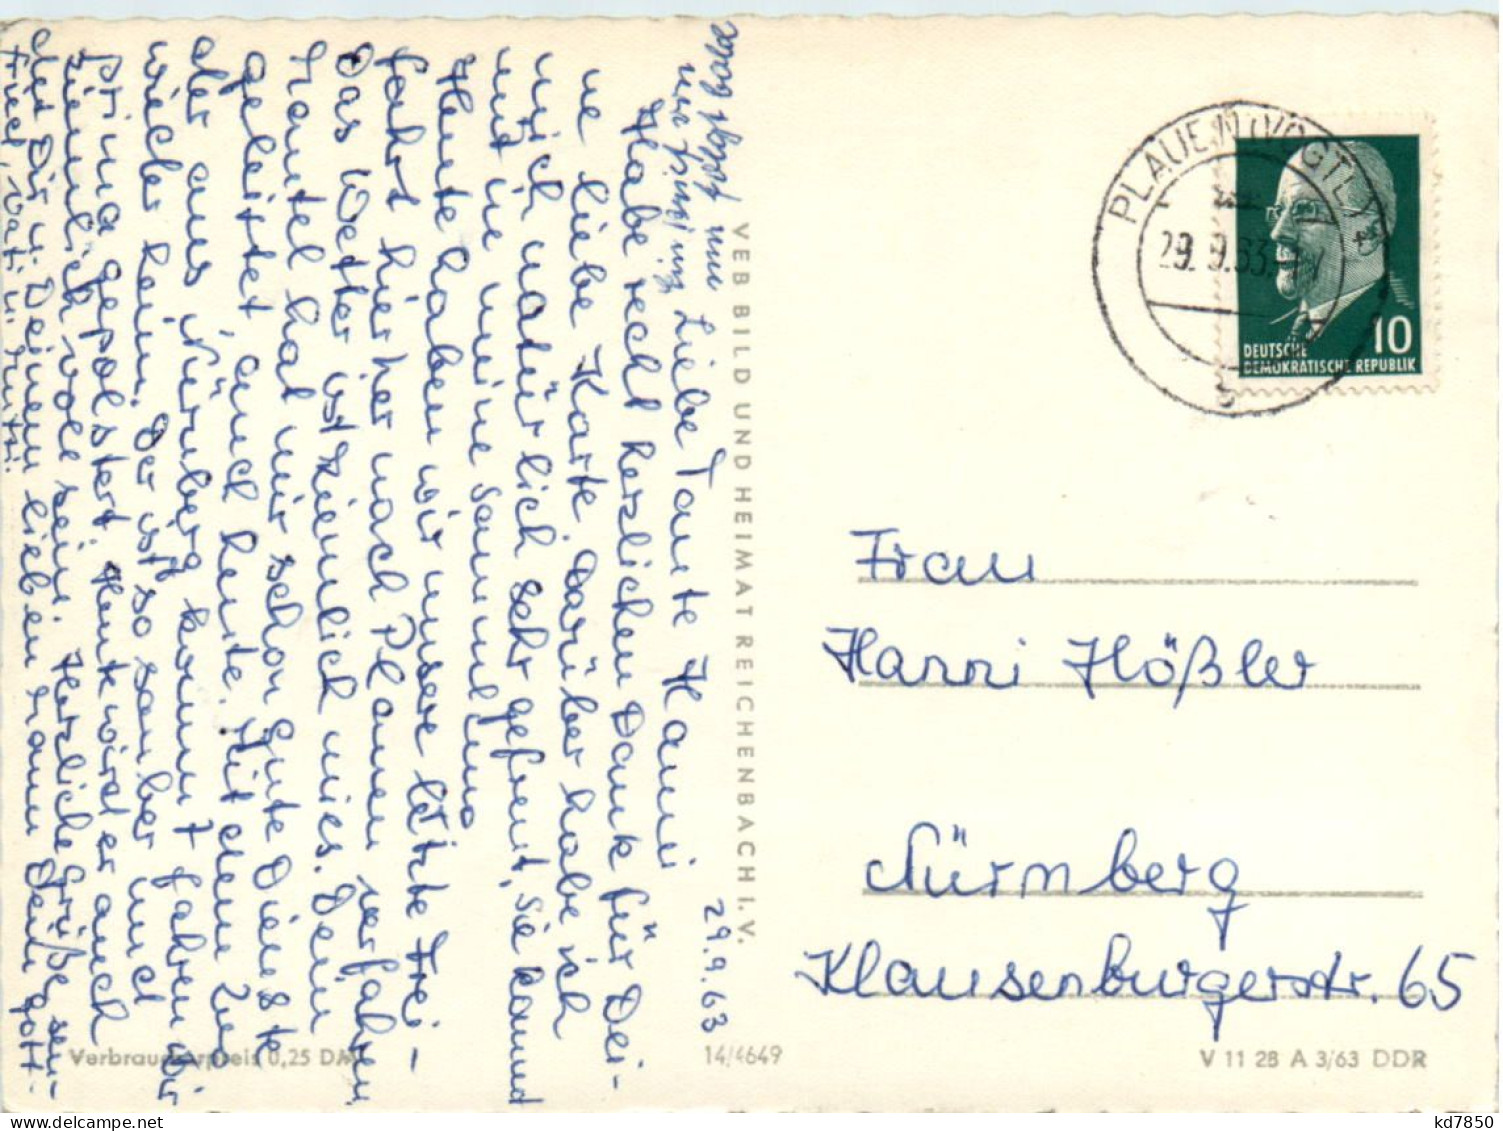 bald folgt nun
nur jünger
29.9.63
Liebe Tante Hanni
Habe recht herzlichen Dank für Dei-
ne liebe Karte. Darüber habe ich
mich natürlich sehr gefreut, sie kommt
mit in meine Sammlung
Heute haben wir unsere letzte Frei-
fahrt hierher nach Plauen verfahren
Das Wetter ist ziemlich mies. Dein
Mantel hat mir schon gute Dienste
geleistet, auch heute. Mit dem Zug
der aus Nürnberg kommt fahren wir
wieder heim. Der ist so sauber und
prima gepolstert. Heut wird er auch
ziemlich voll sein. Herzliche Grüße sen-
den Dir u. Deinem lieben Mann Dein Gott-
fried, Vati u. Mutti.
VEB BILD UND HEIMAT REICHENBACH I. V.
Verbraucherpreis 0,25 DM
14/4649
V 11 28 A 3/63 DDR
PLAUEN (VOGTL)
29. 9.63
b
10
DEUTSCHE
DEMOKRATISCHE REPUBLIK
Frau
Hanni Hößler
Nürnberg
Klausenburgerstr. 65
kd7850